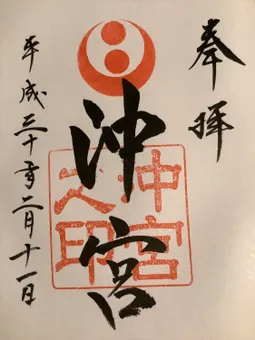 奉拝
沖宮
沖宮之印
平成三十年二月十一日